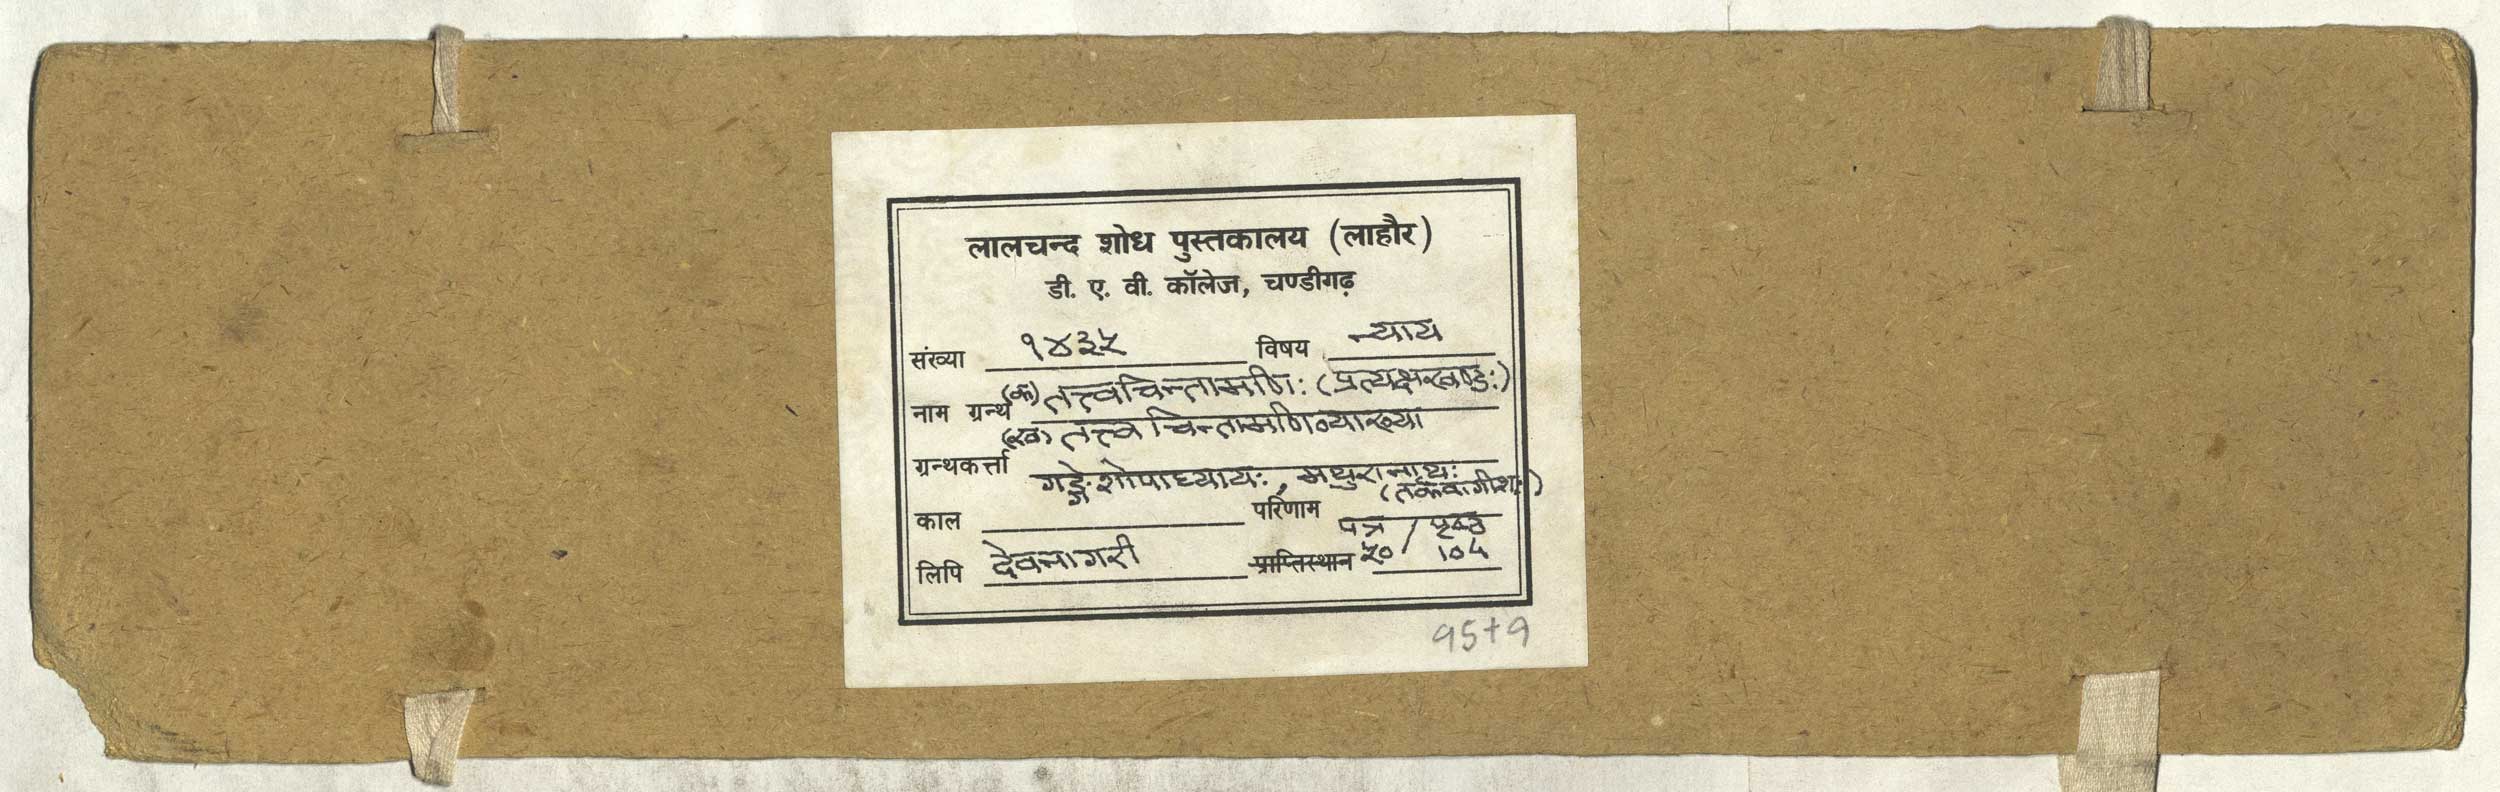 लालचन्द शोध पुस्तकालय (लाहौर)
डी. ए. वी. कॉलेज, चण्डीगढ़
संख्या १४३५ विषय न्याय
नाम ग्रन्थ (क) तत्त्वचिन्तामणिः (प्रत्यक्षखण्डः)
(ख) तत्त्वचिन्तामणिव्याख्या
ग्रन्थकर्त्ता गङ्गेशोपाध्यायः, मथुरानाथः
(तर्कवागीशः)
काल परिणाम पत्र / पृष्ठ
लिपि देवनागरी प्राप्तिस्थान ५० / १०५
95+9